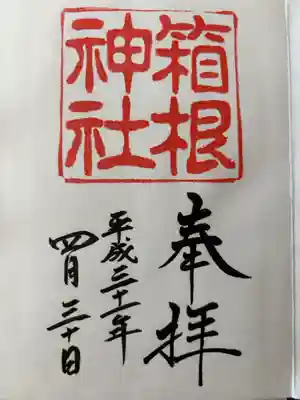 箱根
神社
奉拝
平成三十一年
四月三十日